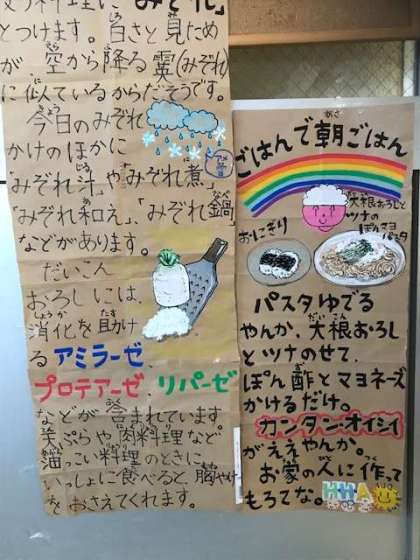 う料理に「みぞれ」
とつけます。白さと見ため
が空から降る霙(みぞれ)
に似ているからだそうです。
今日のみぞれ
かけのほかに
「みぞれ汁」や「みぞれ煮」
「みぞれ和え」、「みぞれ鍋」
などがあります。
だいこん
おろしには、
消化を助け
るアミラーゼ
プロテアーゼ、リパーゼ
などが含まれています。
天ぷらや肉料理など
油っこい料理のときに、
いっしょに食べると、胸やけ
をおさえてくれます。
ごはんで朝ごはん
大根おろしと
ツナの
ぽんマヨ
パスタ
おにぎり
パスタゆでる
やんか、大根おろし
とツナのせて、
ぽん酢とマヨネーズ
かけるだけ。
カンタン・オイシイ
がええやんか。
お家の人に作っ
てもろてな。